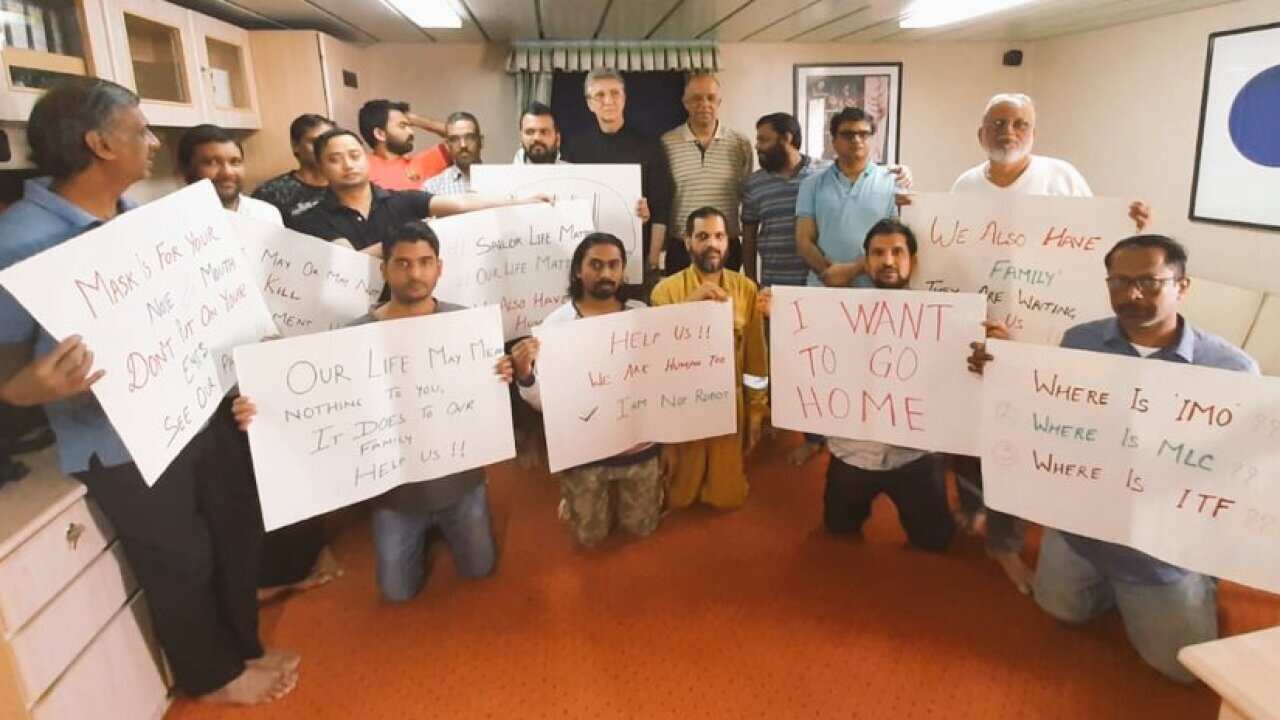 MASK IS FOR YOUR
NOE / MOUTH
DON'T PUT ON YOUR
EYES
SEE OUR
MAY OR MAY NOT
KILL
MENT
OUR LIFE MAY MEAN
NOTHING TO YOU,
IT DOES TO OUR
FAMILY
HELP US !!
SAILOR LIFE
OUR LIFE
ALSO HAVE
HELP US !!
WE ARE HUMAN TOO
✓ I AM NOT ROBOT
I WANT
TO GO
HOME
WE ALSO HAVE
'FAMILY'
THEY ARE WAITING
US
WHERE IS 'IMO' ??
② WHERE IS MLC ??
③ WHERE IS ITF ??